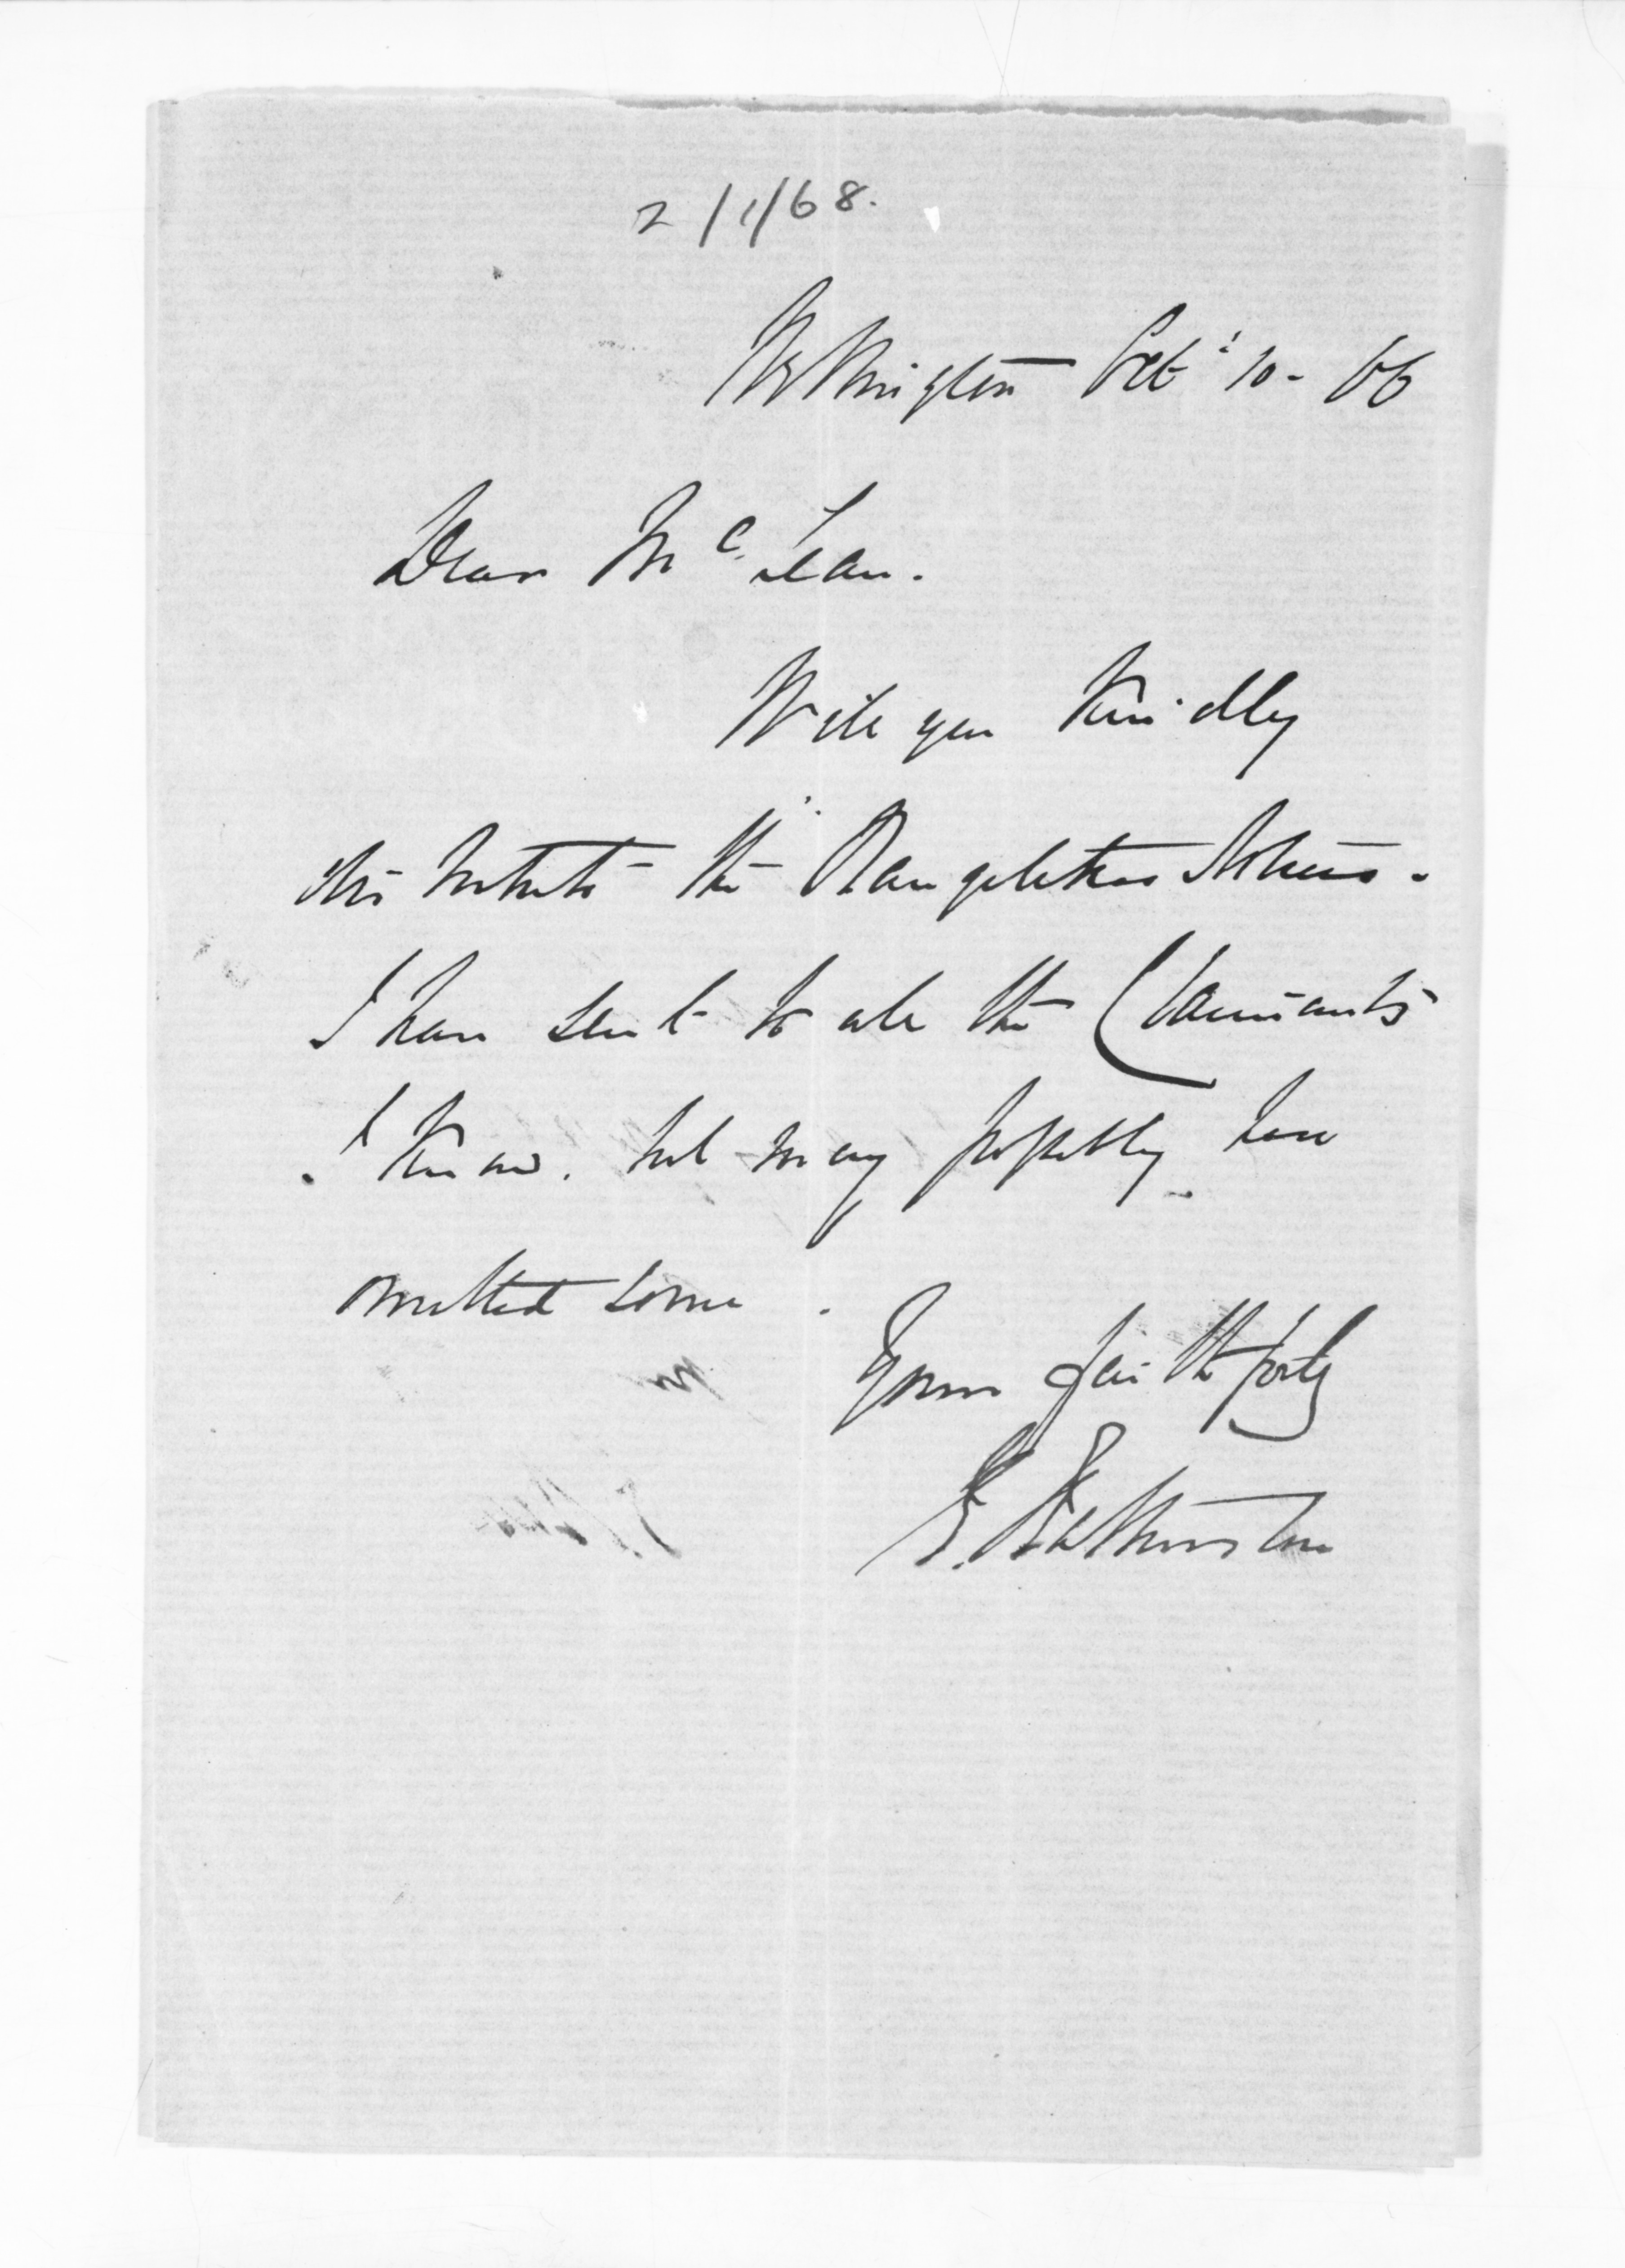 2/1/68.
Wellington Oct: 10 - 66
Dear McLean.
Will you kindly
distribute the Rangitikei Notices.
I have sent to all the Claimants
I know. but may possibly have
omitted some.
Yours faithfully